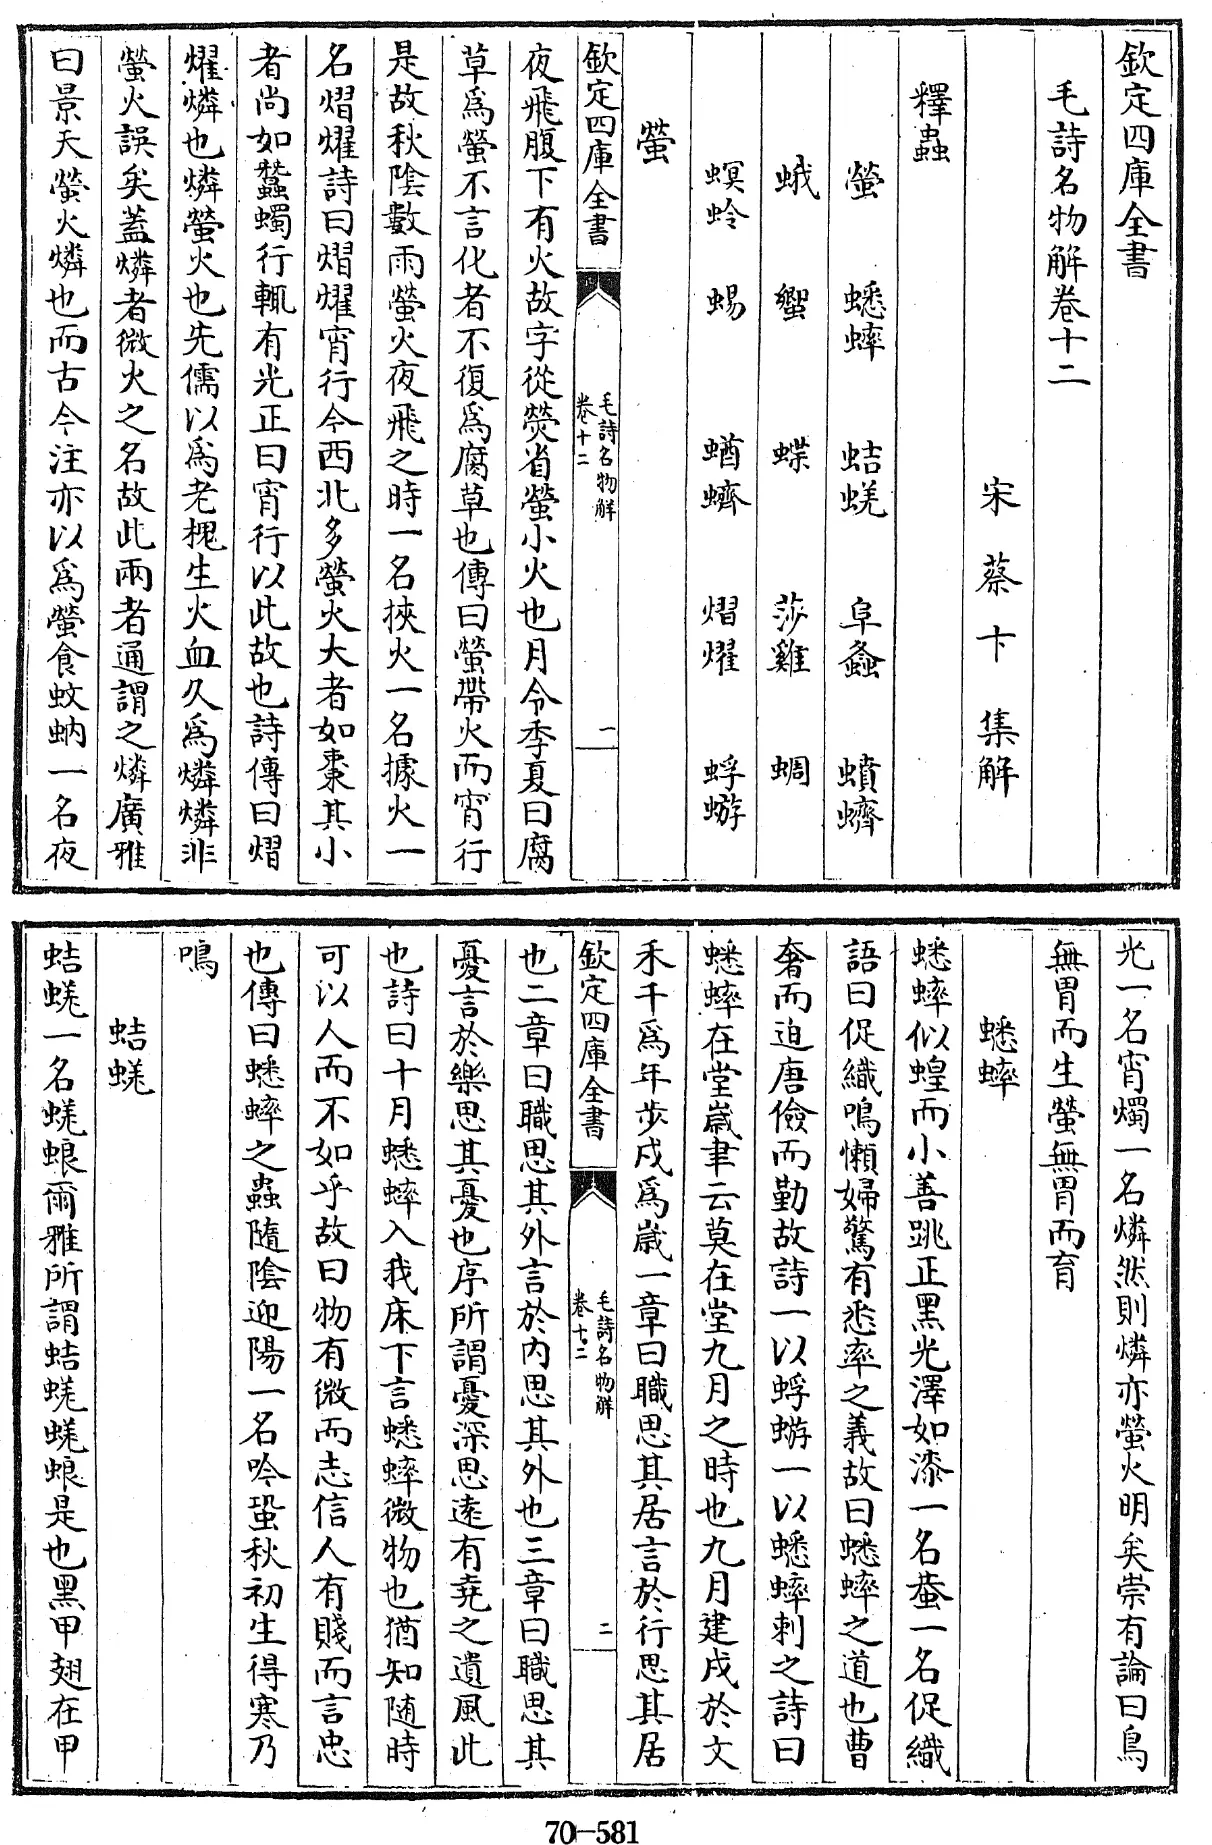 欽定四庫全書
毛詩名物解卷十二
宋 蔡卞 集解
釋蟲
螢 蟋蟀 蛣蜣 阜螽 蠐螬
蛾 蠁 蝶 莎雞 蜩
螟蛉 蜴 蝤蠐 熠燿 蜉蝣
螢
欽定四庫全書
毛詩名物解
卷十二
一
夜飛腹下有火故字從熒省螢小火也月令季夏曰腐
草爲螢不言化者不復爲腐草也傳曰螢帶火而宵行
是故秋陰數雨螢火夜飛之時一名挾火一名據火一
名熠燿詩曰熠燿宵行今西北多螢火大者如棗其小
者尚如蠶蠋行輒有光正曰宵行以此故也詩傳曰熠
燿燐也燐螢火也先儒以爲老槐生火血久爲燐燐非
螢火誤矣蓋燐者微火之名故此兩者通謂之燐廣雅
曰景天螢火燐也而古今注亦以爲螢食蚊蚋一名夜
光一名宵燭一名燐然則燐亦螢火明矣崇有論曰鳥
無胃而生螢無胃而育
蟋蟀
蟋蟀似蝗而小善跳正黑光澤如漆一名蛬一名促織
語曰促織鳴懶婦驚有悉率之義故曰蟋蟀之道也曹
奢而迫唐儉而勤故詩一以蜉蝣一以蟋蟀刺之詩曰
蟋蟀在堂歲聿云莫在堂九月之時也九月建戌於文
禾千爲年步戌爲歲一章曰職思其居言於行思其居
欽定四庫全書
毛詩名物解
卷十二
二
也二章曰職思其外言於內思其外也三章曰職思其
憂言於樂思其憂也序所謂憂深思遠有堯之遺風此
也詩曰十月蟋蟀入我床下言蟋蟀微物也猶知随時
可以人而不如乎故曰物有微而志信人有賤而言忠
也傳曰蟋蟀之蟲隨陰迎陽一名吟蛩秋初生得寒乃
鳴
蛣蜣
蛣蜣一名蜣蜋爾雅所謂蛣蜣蜣蜋是也黑甲翅在甲
70-581